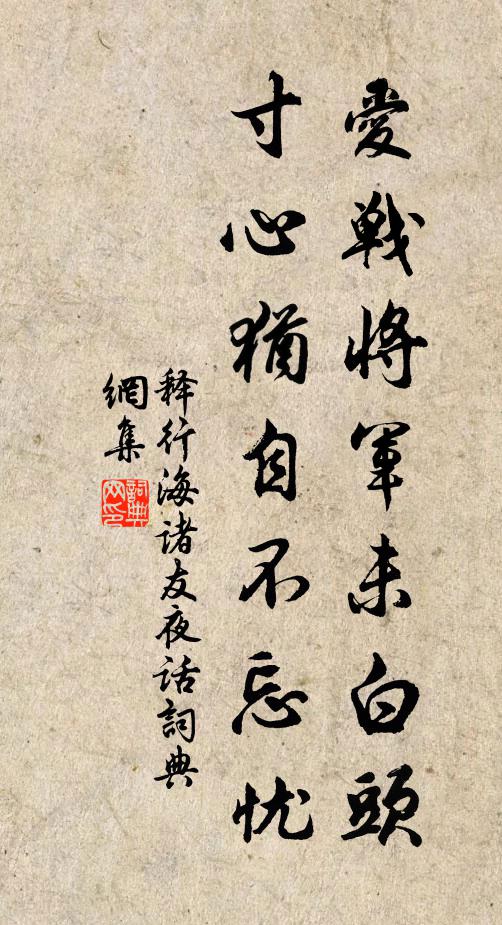 愛戦將軍未白頭
寸心猶自不忘忧
释行海诸友夜话詞典
網集
詞典
网印